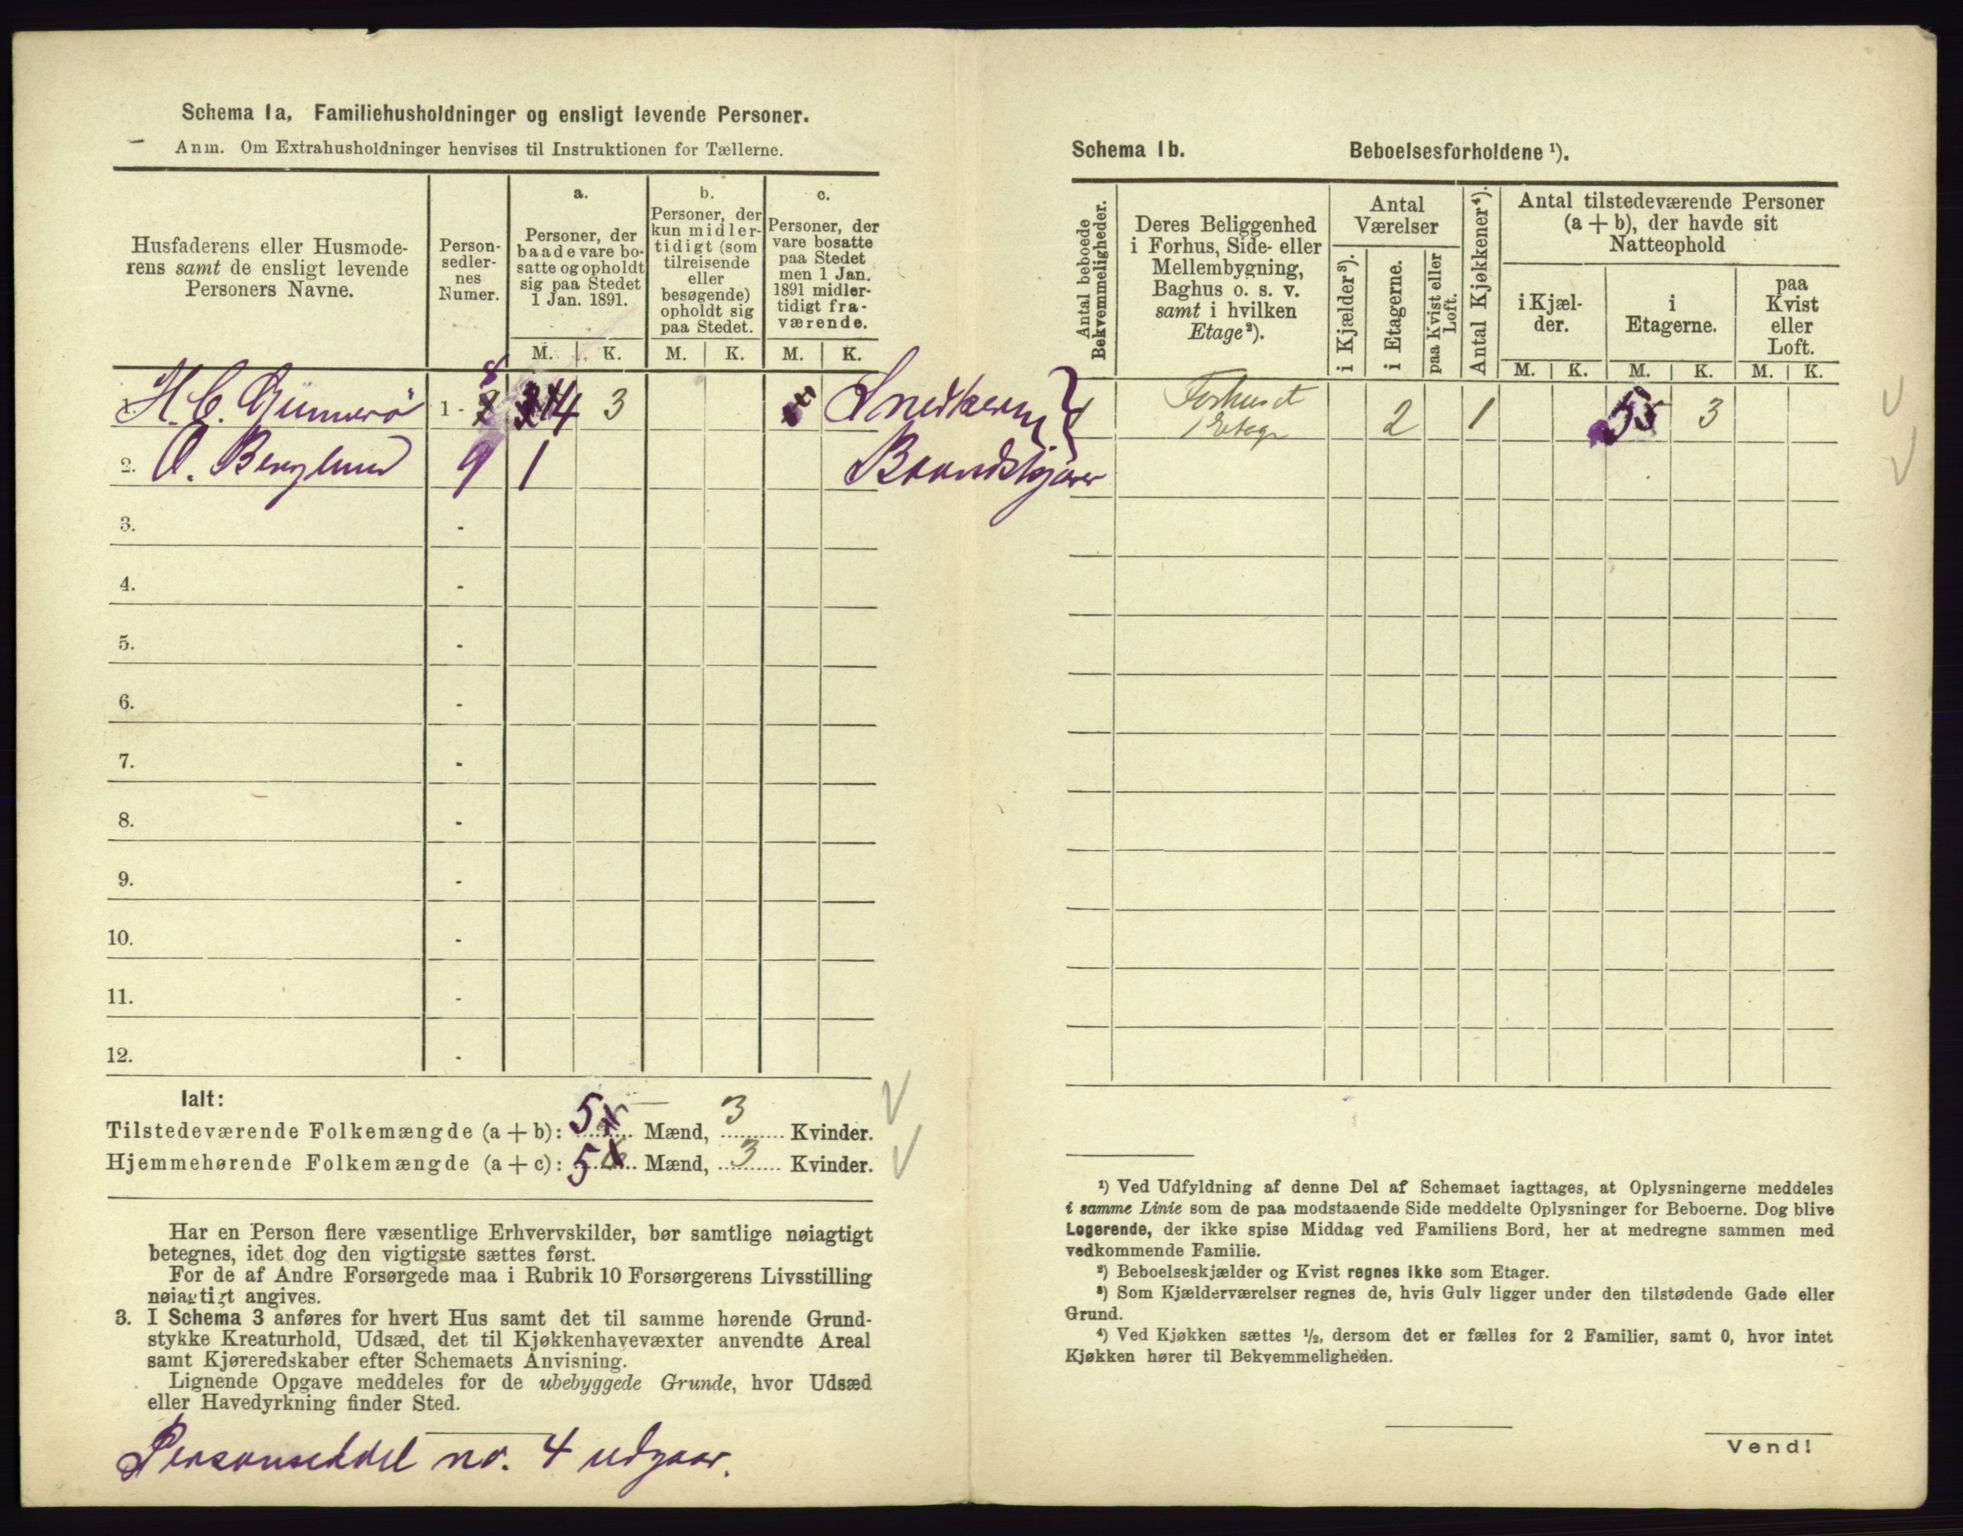 Schema 1a, Familiehusholdninger og ensligt levende Personer.
Anm. Om Extrahusholdninger henvises til Instruktionen for Tællerne.
Husfaderens eller Husmode-
rens samt de ensligt levende
Personers Navne.
Person-
sedler-
nes
Numer.
a.
Personer, der
baade vare bo-
satte og opholdt
sig paa Stedet
1 Jan. 1891.
b.
Personer, der
kun midler-
tidigt (som
tilreisende
eller
besøgende)
opholdt sig
paa Stedet.
c.
Personer, der
vare bosatte
paa Stedet
men 1 Jan.
1891 midler-
tidigt fra-
værende.
M. K. M. K. M. K.
1. H. C. Gunnerö 1 - 8 4 3
2. O. Berglund 9 1
Snedkerm
Brandskjær
3. -
4. -
5. -
6. -
7. -
8. -
9. -
10. -
11. -
12. -
Ialt:
Tilstedeværende Folkemængde (a + b): 5 Mænd, 3 Kvinder.
Hjemmehørende Folkemængde (a + c): 5 Mænd, 3 Kvinder.
Har en Person flere væsentlige Erhvervskilder, bør samtlige nøiagtigt
betegnes, idet dog den vigtigste sættes først.
For de af Andre Forsørgede maa i Rubrik 10 Forsørgerens Livsstilling
nøiagtigt angives.
3. I Schema 3 anføres for hvert Hus samt det til samme hørende Grund-
stykke Kreaturhold, Udsæd, det til Kjøkkenhavevæxter anvendte Areal
samt Kjøreredskaber efter Schemaets Anvisning.
Lignende Opgave meddeles for de ubebyggede Grunde, hvor Udsæd
eller Havedyrkning finder Sted.
Personseddel no. 4 udgaar.
Schema 1b. Beboelsesforholdene ¹).
Antal beboede
Bekvemmeligheder.
Deres Beliggenhed
i Forhus, Side- eller
Mellembygning,
Baghus o. s. v.
samt i hvilken
Etage²).
Antal
Værelser
i Kjælder³).
i Etagerne.
paa Kvist eller
Loft.
Antal Kjøkkener⁴).
Antal tilstedeværende Personer
(a + b), der havde sit
Natteophold
i Kjæl-
der.
i
Etagerne.
paa
Kvist
eller
Loft.
M. K. M. K. M. K.
1 Forhuset
1 Etage 2 1 5 3
¹) Ved Udfyldning af denne Del af Schemaet iagttages, at Oplysningerne meddeles
i samme Linie som de paa modstaaende Side meddelte Oplysninger for Beboerne. Dog blive
Logerende, der ikke spise Middag ved Familiens Bord, her at medregne sammen med
vedkommende Familie.
²) Beboelseskjælder og Kvist regnes ikke som Etager.
³) Som Kjælderværelser regnes de, hvis Gulv ligger under den tilstødende Gade eller
Grund.
⁴) Ved Kjøkken sættes ½, dersom det er fælles for 2 Familier, samt 0, hvor intet
Kjøkken hører til Bekvemmeligheden.
Vend!